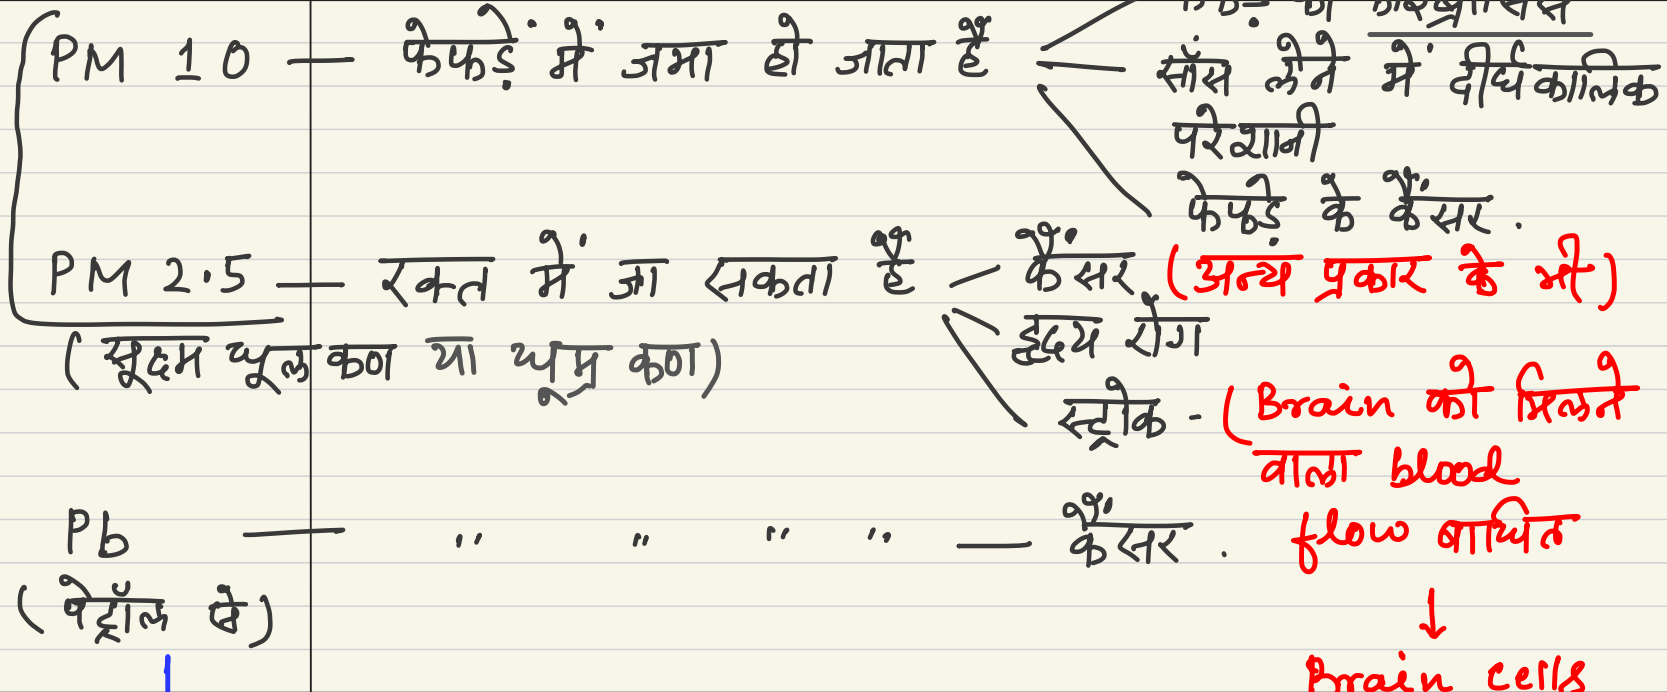 फेफड़ें में जमा हो जाता है
PM 10
साँस लेने में दीर्घकालिक
परेशानी
फेफड़े के कैंसर.
PM 2.5 — रक्त में जा सकता है
कैंसर (अन्य प्रकार के भी)
हृदय रोग
(सूक्ष्म धूल कण या धूम्र कण)
स्ट्रोक - (Brain को मिलने
वाला blood
flow बाधित
↓
Brain cells
Pb — " " " " — कैंसर.
(पेट्रोल से)